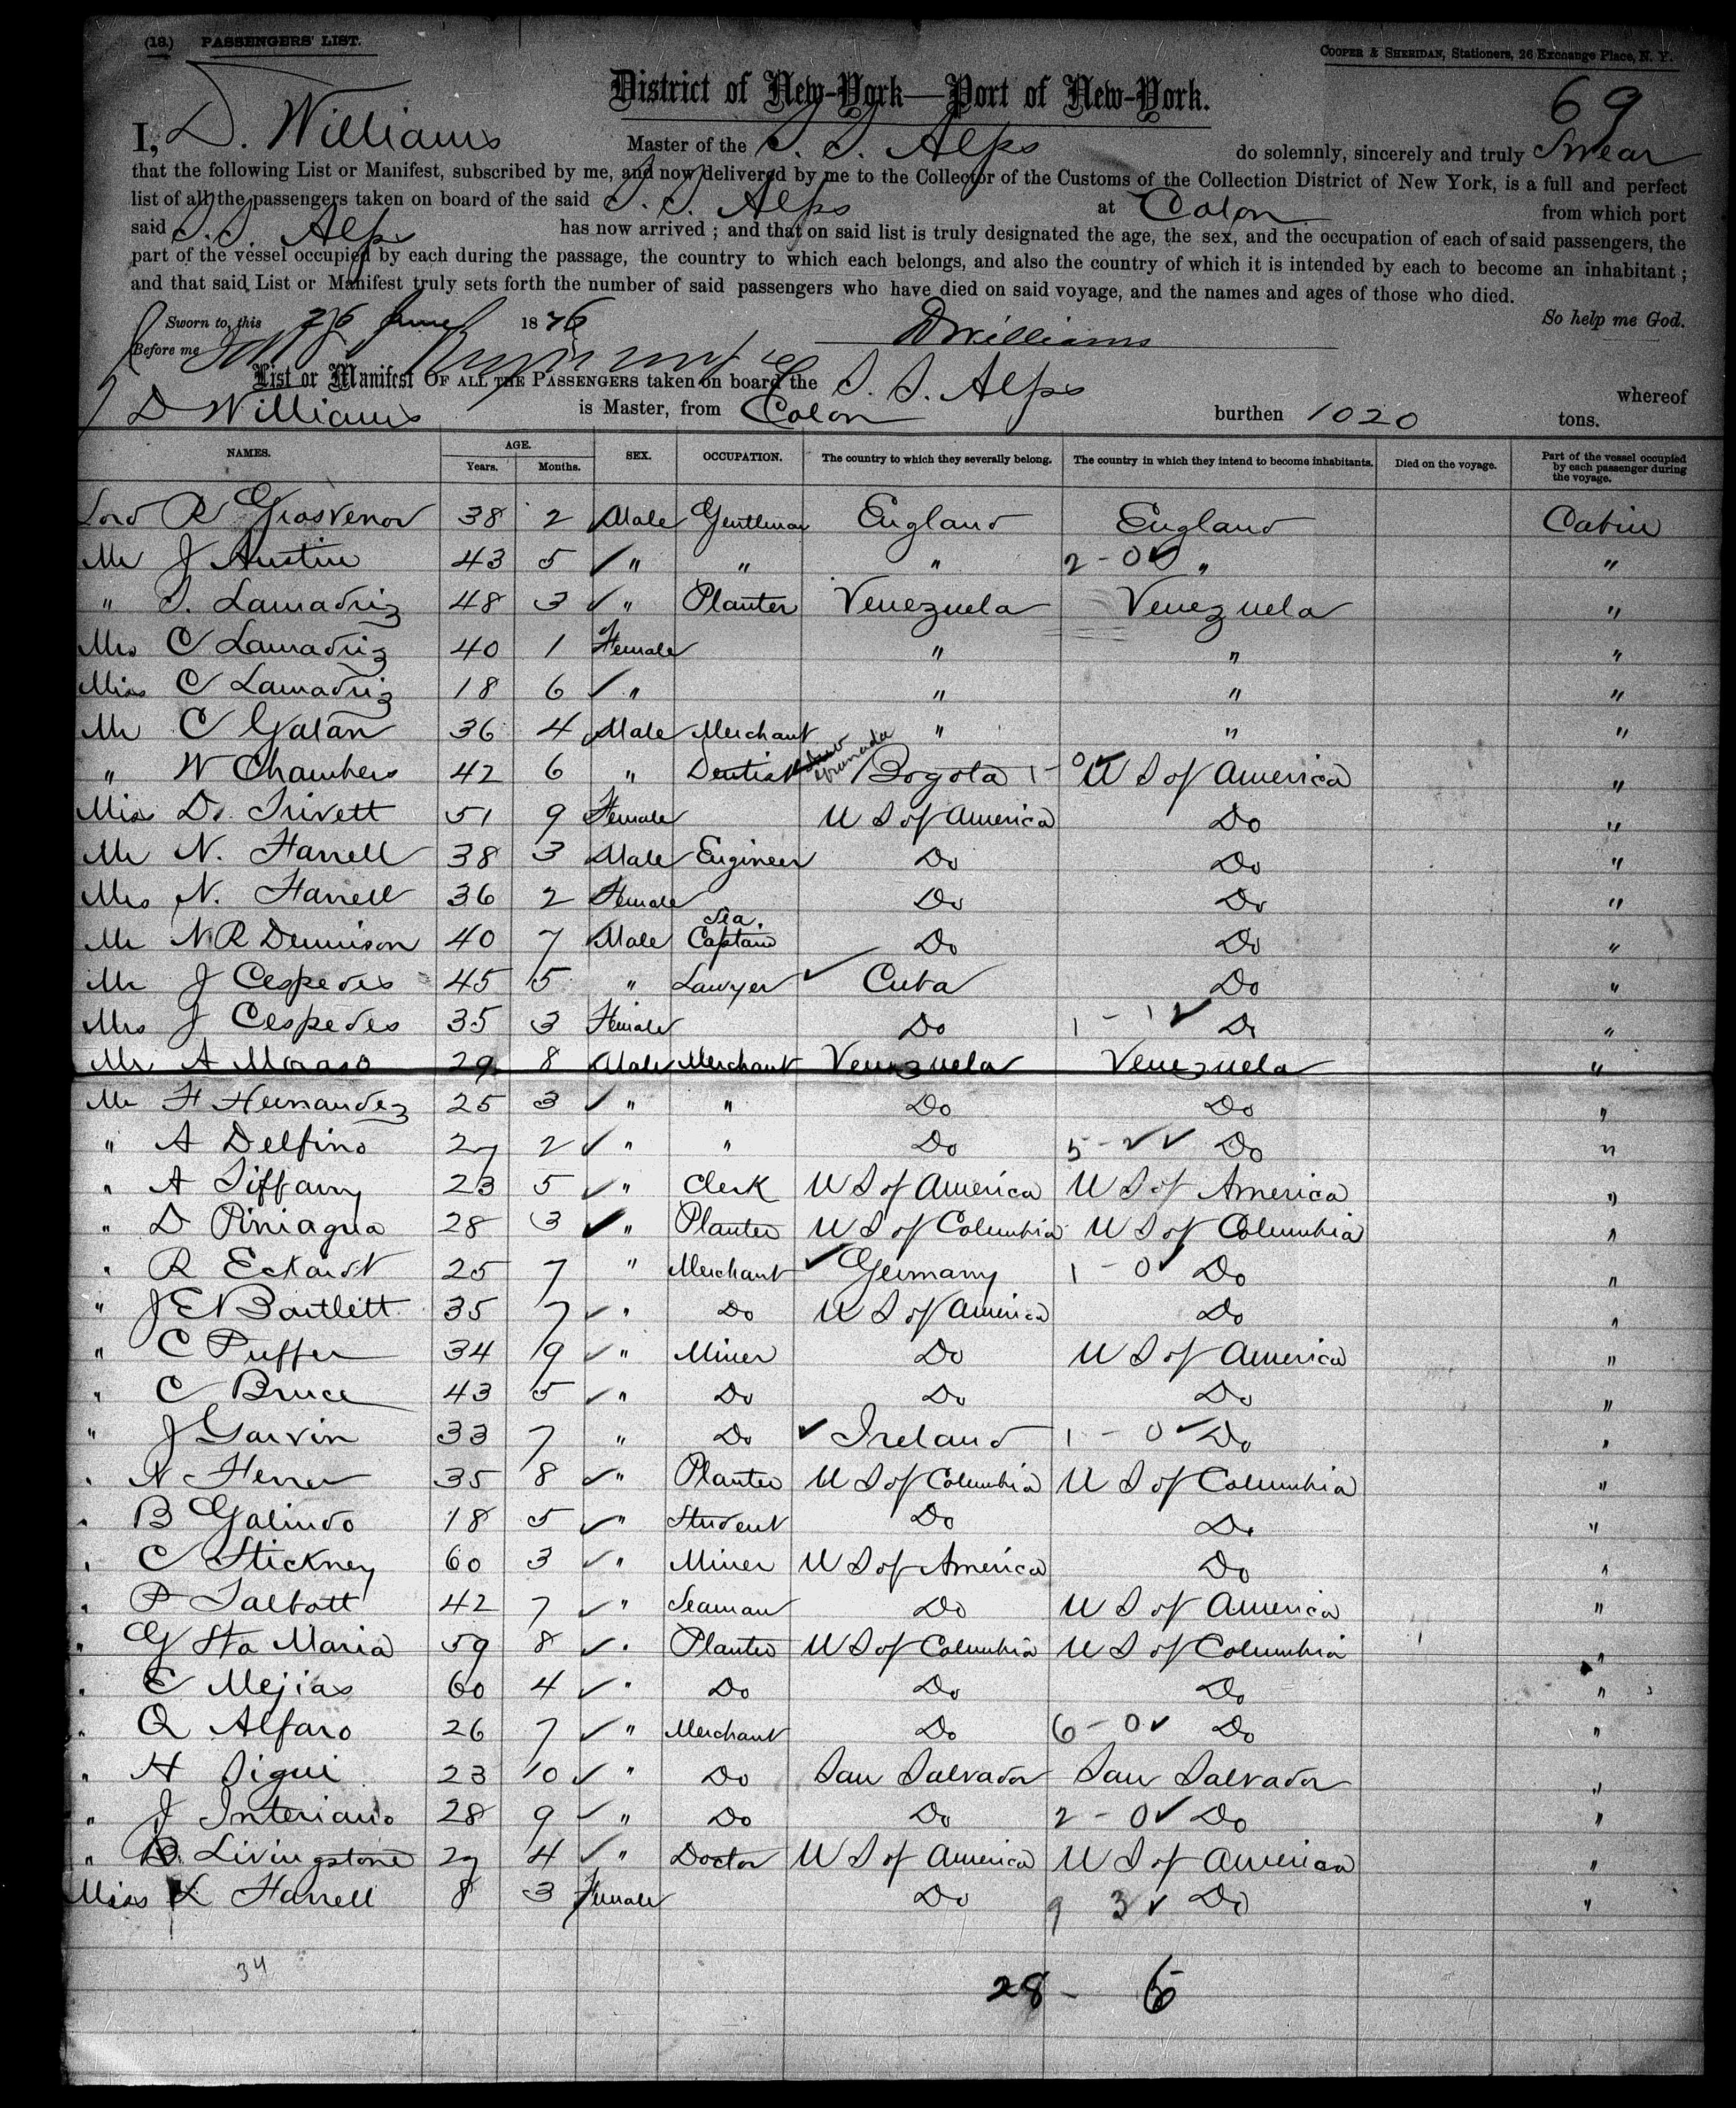 (18.) PASSENGERS' LIST.
COOPER & SHERIDAN, Stationers, 26 Exchange Place, N. Y.
District of New-York—Port of New-York.
69
I, D. Williams Master of the S. S. Alps do solemnly, sincerely and truly Swear
that the following List or Manifest, subscribed by me, and now delivered by me to the Collector of the Customs of the Collection District of New York, is a full and perfect
list of all the passengers taken on board of the said S. S. Alps at Colon from which port
said S. S. Alps has now arrived ; and that on said list is truly designated the age, the sex, and the occupation of each of said passengers, the
part of the vessel occupied by each during the passage, the country to which each belongs, and also the country of which it is intended by each to become an inhabitant ;
and that said List or Manifest truly sets forth the number of said passengers who have died on said voyage, and the names and ages of those who died.
Sworn to, this 26 June 1876 DWilliams So help me God.
Before me
List or Manifest OF ALL THE PASSENGERS taken on board the S. S. Alps whereof
D Williams is Master, from Colon burthen 1020 tons.
NAMES. AGE. Years. Months. SEX. OCCUPATION. The country to which they severally belong. The country in which they intend to become inhabitants. Died on the voyage. Part of the vessel occupied by each passenger during the voyage.
Lord R Grosvenor 38 2 Male Gentleman England England Cabin
Mr J Austin 43 5 " " " 2 - 0 " "
" S. Lamadriz 48 3 " Planter Venezuela Venezuela "
Mrs C Lamadriz 40 1 Female " " "
Miss C Lamadriz 18 6 " " " "
Mr C Galan 36 4 Male Merchant " " "
" W Chambers 42 6 " Dentist New Granada Bogota 1 - 0 U S of America "
Miss D. Trivett 51 9 Female U S of America Do "
Mr N. Harrell 38 3 Male Engineer Do Do "
Mrs N. Harrell 36 2 Female Do Do "
Mr N R Dennison 40 7 Male Sea Captain Do Do "
Mr J Cespedes 45 5 " Lawyer Cuba Do "
Mrs J Cespedes 35 3 Female Do 1 - 1 Do "
Mr A 29 8 Male Merchant Venezuela Venezuela "
Mr H Hernandez 25 3 " " Do Do "
" A Delfino 27 2 " " Do 5 - Do "
" A Tiffany 23 5 " Clerk U S of America U S of America "
" D Piniagua 28 3 " Planter U S of Columbia U S of Columbia "
" R Eckardt 25 7 " Merchant Germany 1 - 0 Do "
" J E Bartlett 35 7 " Do U S of America Do "
" C Puffer 34 9 " Miner Do U S of America "
" C Bruce 43 5 " Do Do Do "
" J Garvin 33 7 " Do Ireland 1 - 0 Do "
" N 35 8 " Planter U S of Columbia U S of Columbia "
" B Galindo 18 5 " Student Do Do "
" C Stickney 60 3 " Miner U S of America Do "
" P Talbott 42 7 " Seaman Do U S of America "
" G Sta Maria 59 8 " Planter U S of Columbia U S of Columbia "
" C Mejias 60 4 " Do Do Do "
" Q Alfaro 26 7 " Merchant Do 6 - 0 Do "
" H Sigui 23 10 " Do San Salvador San Salvador "
" J Interiano 28 9 " Do Do 2 - 0 Do "
" Livingstone 27 4 " Doctor U S of America U S of America "
Miss L Harrell 8 3 Female Do 9 3 Do "
34
28 - 6